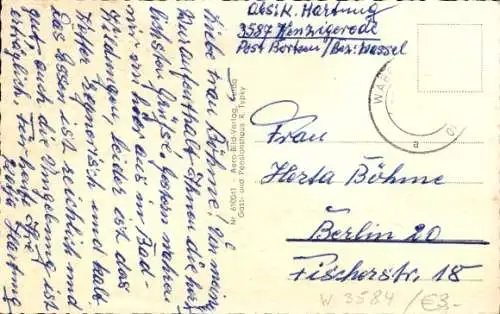 Absi. K. Hartung
3587 Kenzigerode
Post Borken / Bez: Kassel
Liebe Frau Böhme! Von meinem
Kuraufenthalt Ihnen die herz-
lichsten Grüße. Gestern nahmen
wir ein hier aus im Bad
leider ist das
Wetter regnerisch und kalt.
Das Essen ist reichlich und
gut, auch die Umgebung ist
erträglich. Für heute Ihre
Hartung
Nr. Aero-Bild-Verlag, Fulda
Gast- und Pensionshaus R. Typky
WAB
a
Frau
Herta Böhme
Berlin 20
Fischerstr. 18
W 3584 / €3.-